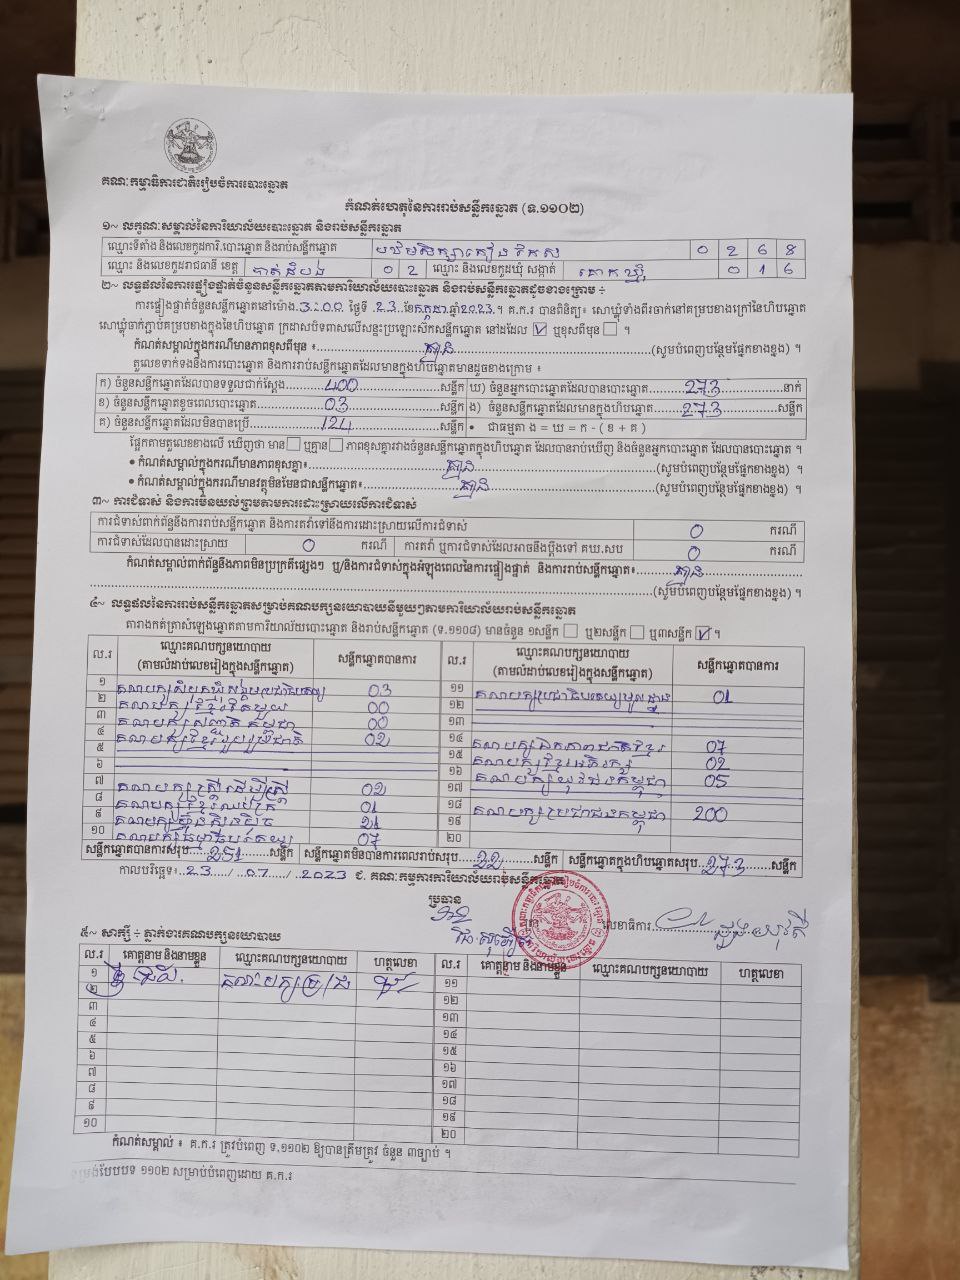 គណៈកម្មាធិការជាតិរៀបចំការបោះឆ្នោត
កំណត់ហេតុនៃការរាប់សន្លឹកឆ្នោត (ទ.១១០២)
១~ លក្ខណៈសម្គាល់នៃការិយាល័យបោះឆ្នោត និងរាប់សន្លឹកឆ្នោត
ឈ្មោះទីតាំង និងលេខកូដការិ.បោះឆ្នោត និងរាប់សន្លឹកឆ្នោត 0 2 6 8
ឈ្មោះ និងលេខកូដរាជធានី ខេត្ត បាត់ដំបង 0 2 ឈ្មោះ និងលេខកូដឃុំ សង្កាត់ គោកឃ្មុំ 0 1 6
២~ លទ្ធផលនៃការផ្ទៀងផ្ទាត់ចំនួនសន្លឹកឆ្នោតតាមការិយាល័យបោះឆ្នោត និងរាប់សន្លឹកឆ្នោតដូចខាងក្រោម ÷
ការផ្ទៀងផ្ទាត់ចំនួនសន្លឹកឆ្នោតនៅម៉ោង 3:00 ថ្ងៃទី 23 ខែកក្កដា ឆ្នាំ2023។ គ.ក.រ បានពិនិត្យ៖ សោឃ្លុំទាំងពីរចាក់នៅគម្របខាងក្រៅនៃហិបឆ្នោត
សោឃ្លុំចាក់ភ្ជាប់គម្របខាងក្នុងនៃហិបឆ្នោត ក្រដាសបិទពាសលើសន្ទះប្រឡោះស៊កសន្លឹកឆ្នោត នៅដដែល ☑ ឬខុសពីមុន ☐ ។
កំណត់សម្គាល់ក្នុងករណីមានភាពខុសពីមុន ៖ គ្មាន (សូមបំពេញបន្ថែមផ្នែកខាងខ្នង) ។
តួលេខទាក់ទងនឹងការបោះឆ្នោត និងការរាប់សន្លឹកឆ្នោតដែលមានក្នុងហិបឆ្នោតមានដូចខាងក្រោម ៖
ក) ចំនួនសន្លឹកឆ្នោតដែលបានទទួលជាក់ស្តែង 400 សន្លឹក ឃ) ចំនួនអ្នកបោះឆ្នោតដែលបានបោះឆ្នោត 273 នាក់
ខ) ចំនួនសន្លឹកឆ្នោតខូចពេលបោះឆ្នោត 03 សន្លឹក ង) ចំនួនសន្លឹកឆ្នោតដែលមានក្នុងហិបឆ្នោត 273 សន្លឹក
គ) ចំនួនសន្លឹកឆ្នោតដែលមិនបានប្រើ 124 សន្លឹក • ជាធម្មតា ង = ឃ = ក - ( ខ + គ )
ផ្អែកតាមតួលេខខាងលើ ឃើញថា មាន ☐ ឬគ្មាន ☐ ភាពខុសគ្នារវាងចំនួនសន្លឹកឆ្នោតក្នុងហិបឆ្នោត ដែលបានរាប់ឃើញ និងចំនួនអ្នកបោះឆ្នោត ដែលបានបោះឆ្នោត ។
• កំណត់សម្គាល់ក្នុងករណីមានភាពខុសគ្នា៖ គ្មាន (សូមបំពេញបន្ថែមផ្នែកខាងខ្នង) ។
• កំណត់សម្គាល់ក្នុងករណីមានវត្ថុមិនមែនជាសន្លឹកឆ្នោត៖ គ្មាន (សូមបំពេញបន្ថែមផ្នែកខាងខ្នង) ។
៣~ ការជំទាស់ និងការមិនយល់ព្រមតាមការដោះស្រាយលើការជំទាស់
ការជំទាស់ពាក់ព័ន្ធនឹងការរាប់សន្លឹកឆ្នោត និងការតវ៉ាទៅនឹងការដោះស្រាយលើការជំទាស់ 0 ករណី
ការជំទាស់ដែលបានដោះស្រាយ 0 ករណី ការតវ៉ា ឬការជំទាស់ដែលអាចនឹងប្តឹងទៅ គឃ.សប 0 ករណី
កំណត់សម្គាល់ពាក់ព័ន្ធនឹងភាពមិនប្រក្រតីផ្សេងៗ ឬ/និងការជំទាស់ក្នុងអំឡុងពេលនៃការផ្ទៀងផ្ទាត់ និងការរាប់សន្លឹកឆ្នោត៖ គ្មាន
(សូមបំពេញបន្ថែមផ្នែកខាងខ្នង) ។
៤~ លទ្ធផលនៃការរាប់សន្លឹកឆ្នោតសម្រាប់គណបក្សនយោបាយនីមួយៗតាមការិយាល័យរាប់សន្លឹកឆ្នោត
តារាងកត់ត្រាសំឡេងឆ្នោតតាមការិយាល័យបោះឆ្នោត និងរាប់សន្លឹកឆ្នោត (ទ.១១០៨) មានចំនួន ១សន្លឹក ☐ ឬ២សន្លឹក ☐ ឬ៣សន្លឹក ☑ ។
ល.រ ឈ្មោះគណបក្សនយោបាយ (តាមលំដាប់លេខរៀងក្នុងសន្លឹកឆ្នោត) សន្លឹកឆ្នោតបានការ ល.រ ឈ្មោះគណបក្សនយោបាយ (តាមលំដាប់លេខរៀងក្នុងសន្លឹកឆ្នោត) សន្លឹកឆ្នោតបានការ
១ គណបក្សសំបុកឃ្មុំសង្គមប្រជាធិបតេយ្យ 03
២ គណបក្សខ្មែរតែមួយ 00
៣ គណបក្សសញ្ជាតិកម្ពុជា 00
៤ គណបក្សខ្មែររួបរួមជាតិ 02
៥
៦
៧ គណបក្សស្ត្រីដើម្បីស្ត្រី 02
៨ 01
៩ គណបក្សហ្វ៊ុនស៊ិនប៉ិច 21
១០ គណបក្សធម្មាធិបតេយ្យ 07
១១ គណបក្សប្រជាធិបតេយ្យមូលដ្ឋាន 01
១២
១៣
១៤ គណបក្សឯកភាពជាតិខ្មែរ 07
១៥ គណបក្សខ្មែរអភិរក្ស 02
១៦ គណបក្សយុវជនកម្ពុជា 05
១៧
១៨ គណបក្សប្រជាជនកម្ពុជា 200
១៩
២០
សន្លឹកឆ្នោតបានការសរុប 251 សន្លឹក សន្លឹកឆ្នោតមិនបានការពេលរាប់សរុប 22 សន្លឹក សន្លឹកឆ្នោតក្នុងហិបឆ្នោតសរុប 273 សន្លឹក
កាលបរិច្ឆេទ៖ 23 / 07 / 2023 ជ. គណៈកម្មការការិយាល័យរាប់សន្លឹកឆ្នោត
ប្រធាន
លេខាធិការ
៥~ សាក្សី ÷ ភ្នាក់ងារគណបក្សនយោបាយ
ល.រ គោត្តនាម និងនាមខ្លួន ឈ្មោះគណបក្សនយោបាយ ហត្ថលេខា ល.រ គោត្តនាម និងនាមខ្លួន ឈ្មោះគណបក្សនយោបាយ ហត្ថលេខា
១ ១១
២ ១២
៣ ១៣
៤ ១៤
៥ ១៥
៦ ១៦
៧ ១៧
៨ ១៨
៩ ១៩
១០ ២០
កំណត់សម្គាល់ ៖ គ.ក.រ ត្រូវបំពេញ ទ.១១០២ ឱ្យបានត្រឹមត្រូវ ចំនួន ៣ច្បាប់ ។
ទម្រង់បែបបទ ១១០២ សម្រាប់បំពេញដោយ គ.ក.រ